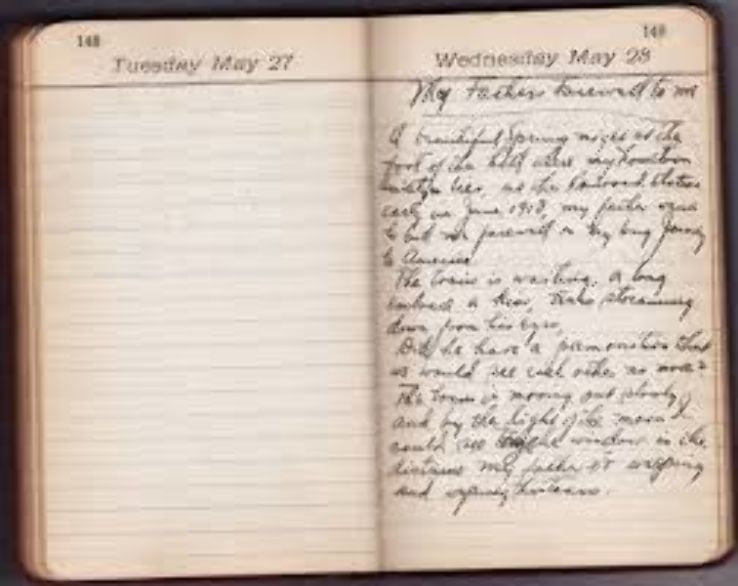 148
Tuesday May 27
149
Wednesday May 28
My Fathers Farewell to me
A beautiful Spring night at the
foot of the hill where my
lies, at the Railroad Station
early in June 1913, my father came
to bid me farewell on my long journey
to America
The train is waiting, a long
embrace a kiss, tears streaming
down from his eyes,
Did he have a premonition that
we would see each other no more?
The train is moving out slowly,
and by the light of the moon I
could see the window in the
distance my father
and wiping his tears.